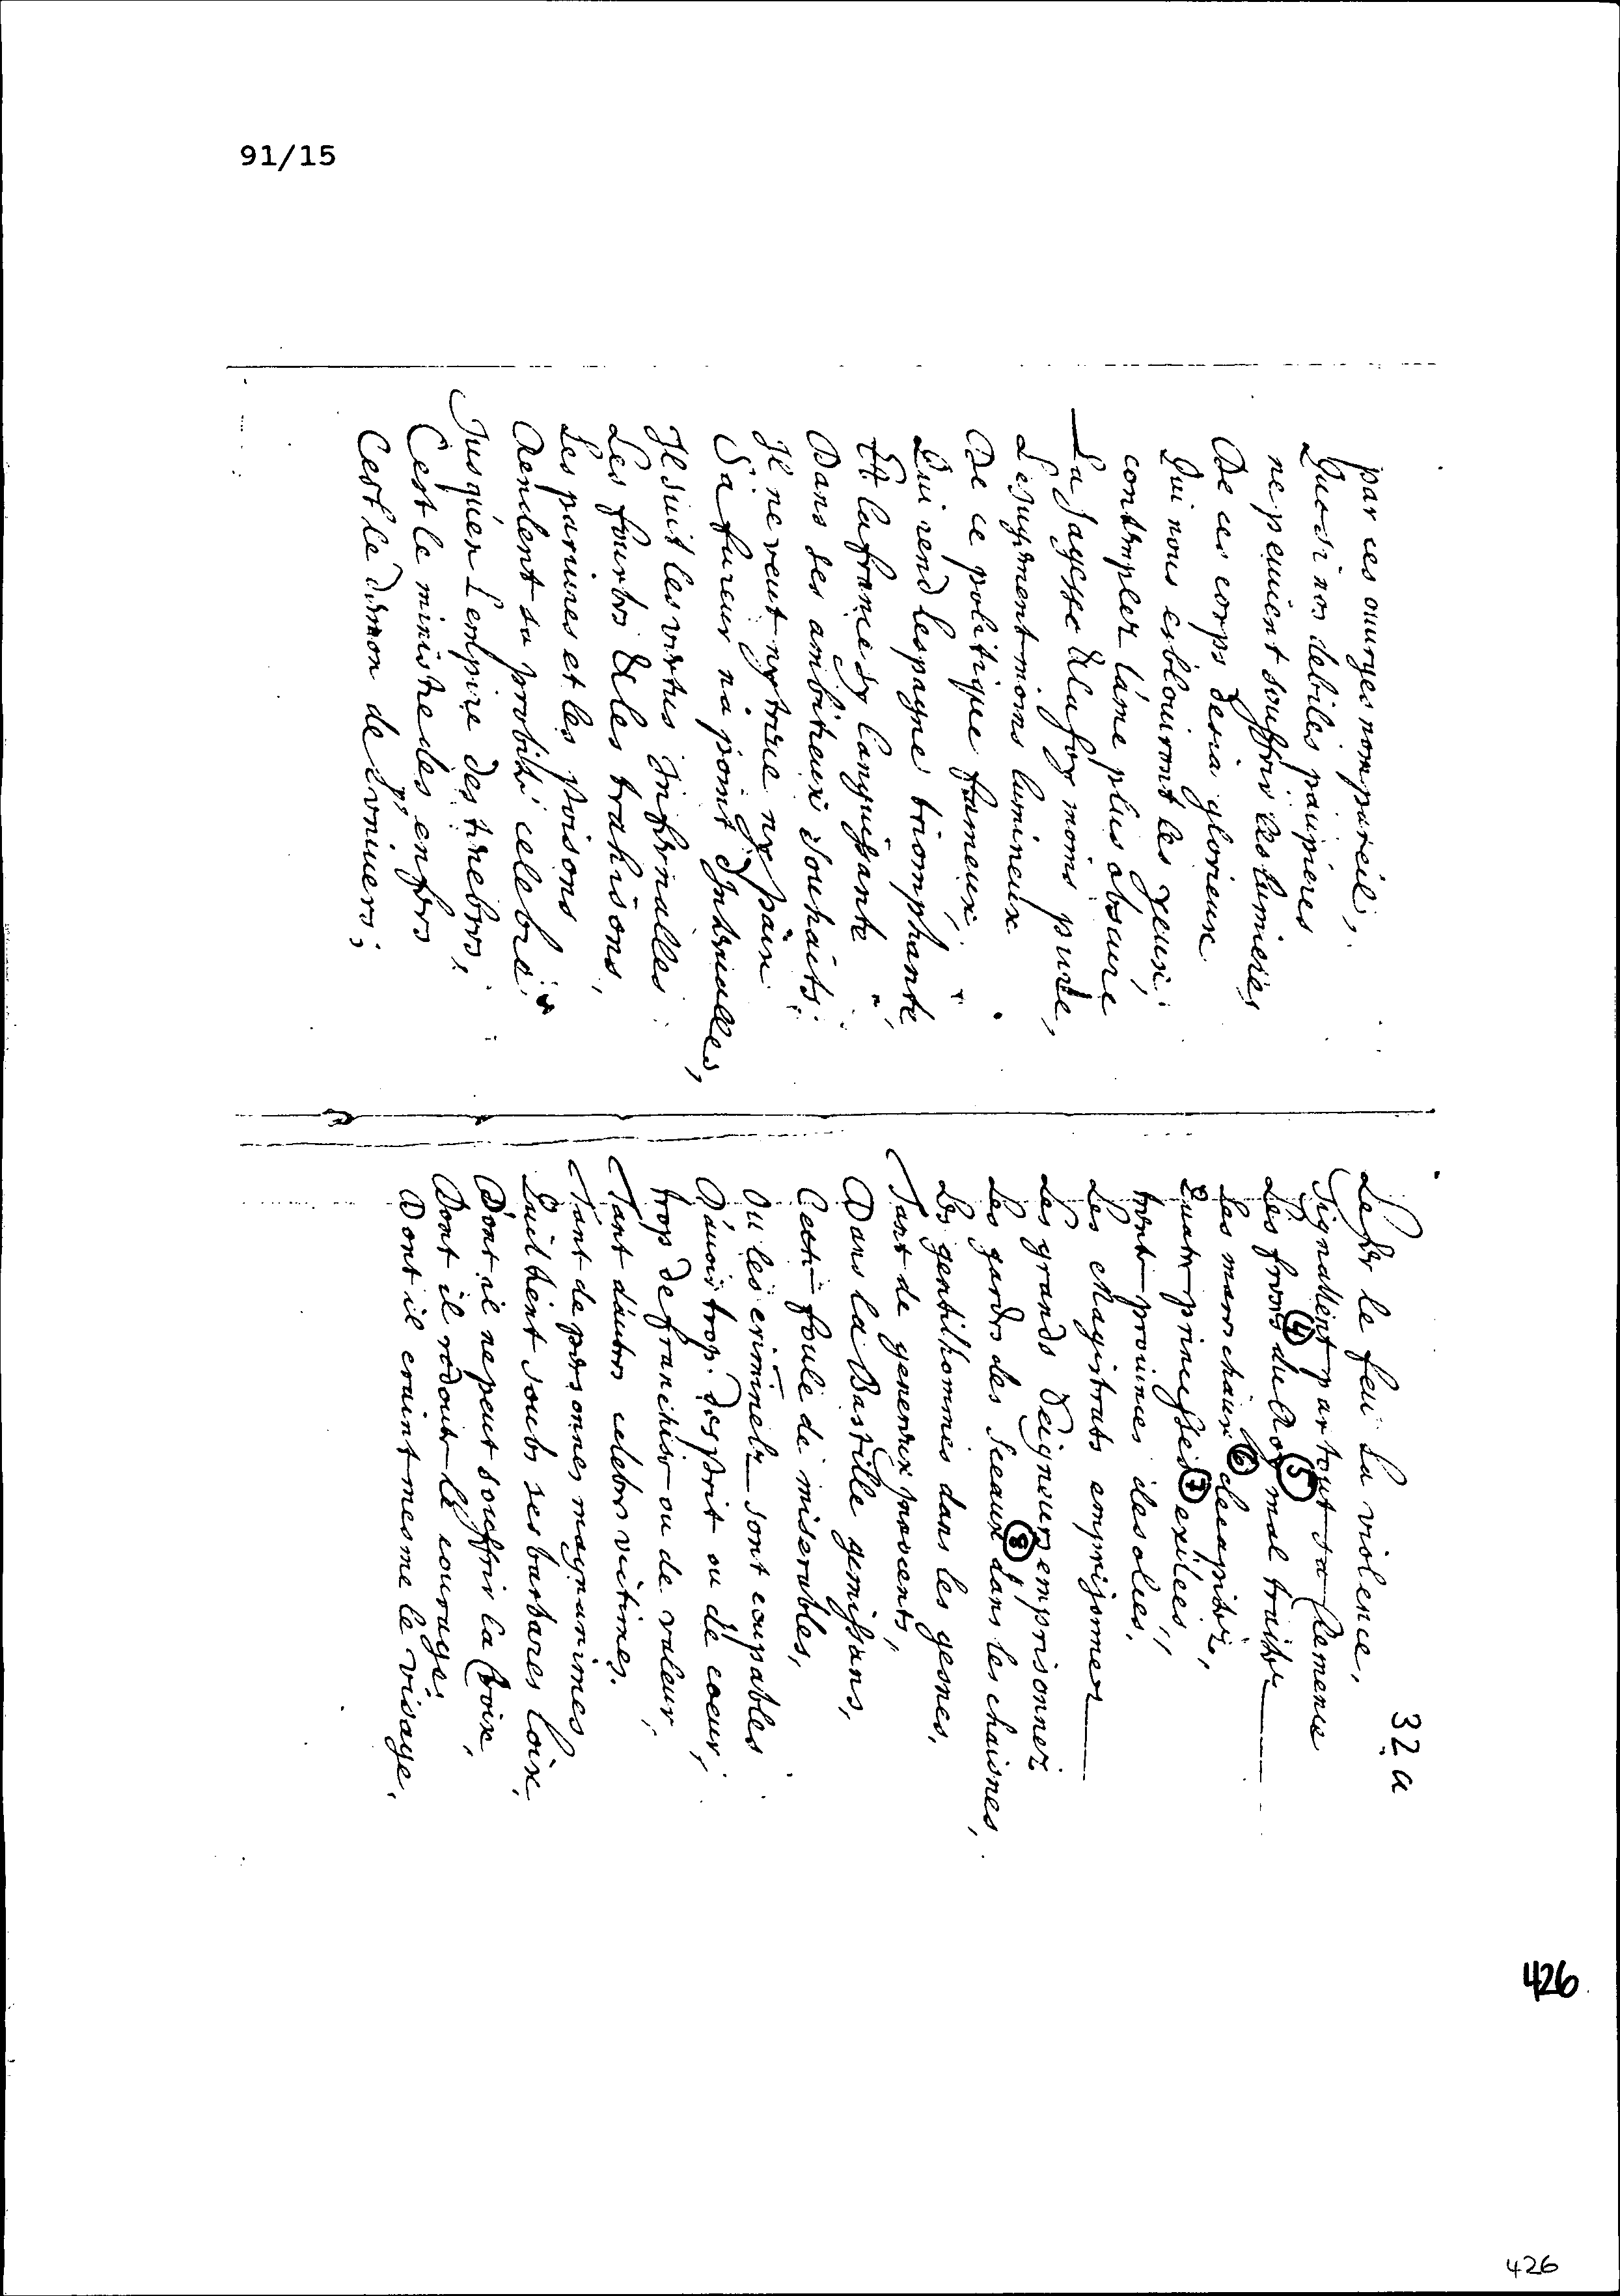 91/15
par ces ouurages nompareil,
Que si nos debiles paupieres
ne peuuent souffrir les lumieres
De ces corps desia glorieux
Qui nous esblouiront les yeux;
contempler l'ame plus obscure
La sagesse & la foy moins pure,
Le jugement moins lumineux
De ce politique fameux,
Qui rend l'espagne triomphante
Et la france sy languissante
Dans ses ambitieux souhaits;
Il ne veut ny treue ny paix
Sa fureur n'a point d'Interualles,
Il suit les vertus infernalles
Les fourbes & les trahisons,
Les pariures et les poisons
Rendent sa probité celebre
Jusqu'en l'empire des tenebres,
C'est le ministre des enfers
C'est le demon de l'vniuers;
32 a
Le fer le feu la violence,
Signallent par tout sa clemence
Les freres 4 du Roy 5 mal traitte
Les mareschaux 6 decapitez,
Quatre princesses 7 exilées,
trente prouinces desolées,
Les Magistrats emprisonnez
Les grands Seigneurs emprisonnez
Les gardes des Sceaux 8 dans les chaisnes,
Les gentilhommes dans les gesnes,
Tant de genereux innocents,
Dans la Bastille gemissans,
Cette foule de miserables,
Ou les criminelz sont coupables
D'auoir trop d'esprit ou de coeur,
trop de franchise ou de valeur,
Tant d'autres celebres victimes,
Tant de personnes magnanimes
Qu'il tient soubs ses barbares loix,
Dont il ne peut souffrir la voix,
Dont il redoute le courage,
Dont il craint mesme le visage,
426
426